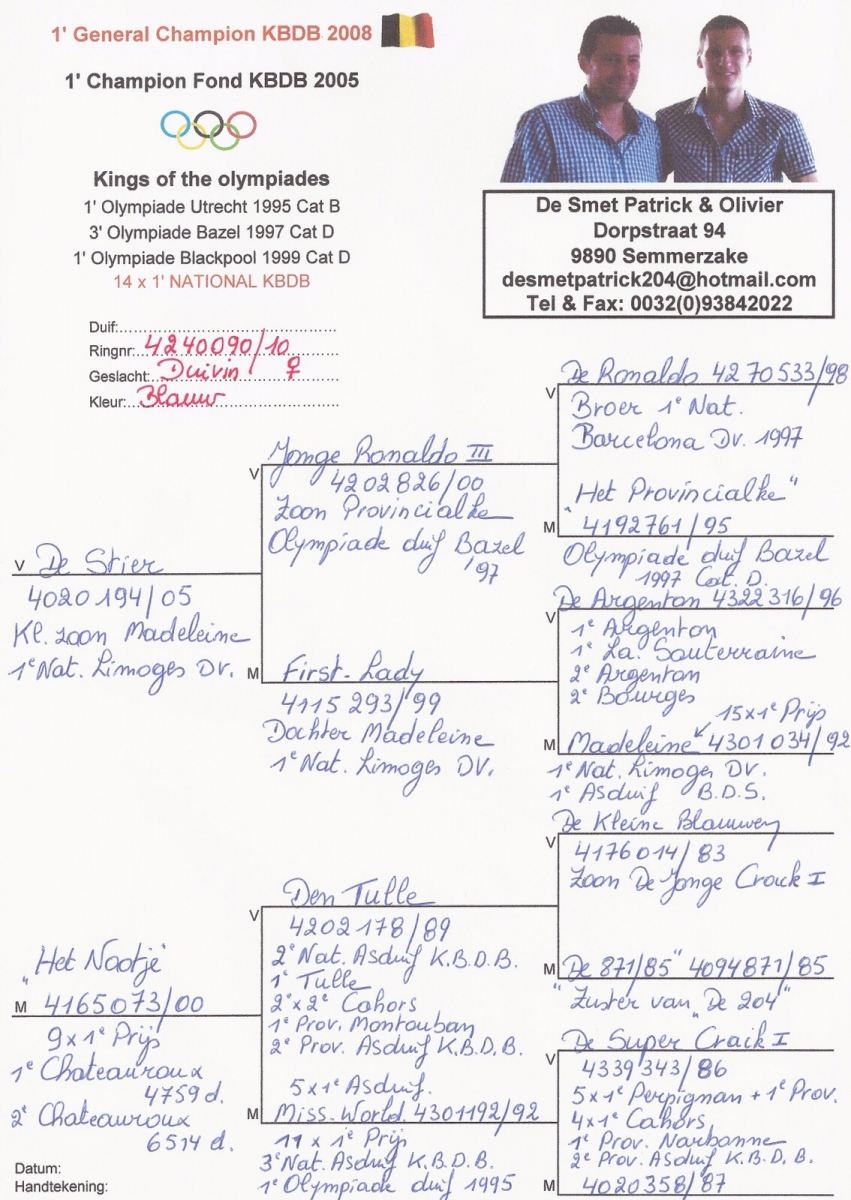 1' General Champion KBDB 2008
1' Champion Fond KBDB 2005
Kings of the olympiades
1' Olympiade Utrecht 1995 Cat B
3' Olympiade Bazel 1997 Cat D
1' Olympiade Blackpool 1999 Cat D
14 x 1' NATIONAL KBDB
De Smet Patrick & Olivier
Dorpstraat 94
9890 Semmerzake
desmetpatrick204@hotmail.com
Tel & Fax: 0032(0)93842022
Duif:
Ringnr: 4240090/10
Geslacht: Duivin ♀
Kleur: Blauw
V De Stier
4020194/05
Kl. zoon Madeleine
1e Nat. Limoges DV.
V Jonge Ronaldo III
4202826/00
Zoon Provincialke
Olympiade duif Bazel
'97
V De Ronaldo 4270533/98
Broer 1e Nat.
Barcelona Dv. 1997
"Het Provincialke"
M 4192761/95
Olympiade duif Bazel
1997 Cat. D.
M First-Lady
4115293/99
Dochter Madeleine
1e Nat. Limoges DV.
V De Argenton 4322316/96
1e Argenton
1e La Souterraine
2e Argenton
2e Bourges
15x1e Prijs
M Madeleine 4301034/92
1e Nat. Limoges DV.
1e Asduif B.D.S.
"Het Nootje"
M 4165073/00
9x1e Prijs
1e Chateauroux
4759 d.
2e Chateauroux
6514 d.
V Den Tulle
4202178/89
2e Nat. Asduif K.B.D.B.
1e Tulle
2x2e Cahors
1e Prov. Montouban
2e Prov. Asduif K.B.D.B.
V De Kleine Blauwen
4176014/83
Zoon De Jonge Crack I
M De 871/85" 4094871/85
"Zuster van "De 204"
5x1e Asduif.
M Miss-World 4301192/92
11 x 1e Prijs
3e Nat. Asduif K.B.D.B.
1e Olympiade duif 1995
V De Super Crack I
4339343/86
5x1e Perpignan + 1e Prov.
4x1e Cahors
1e Prov. Narbonne
2e Prov. Asduif K.B.D.B.
M 4020358/87
Datum:
Handtekening: